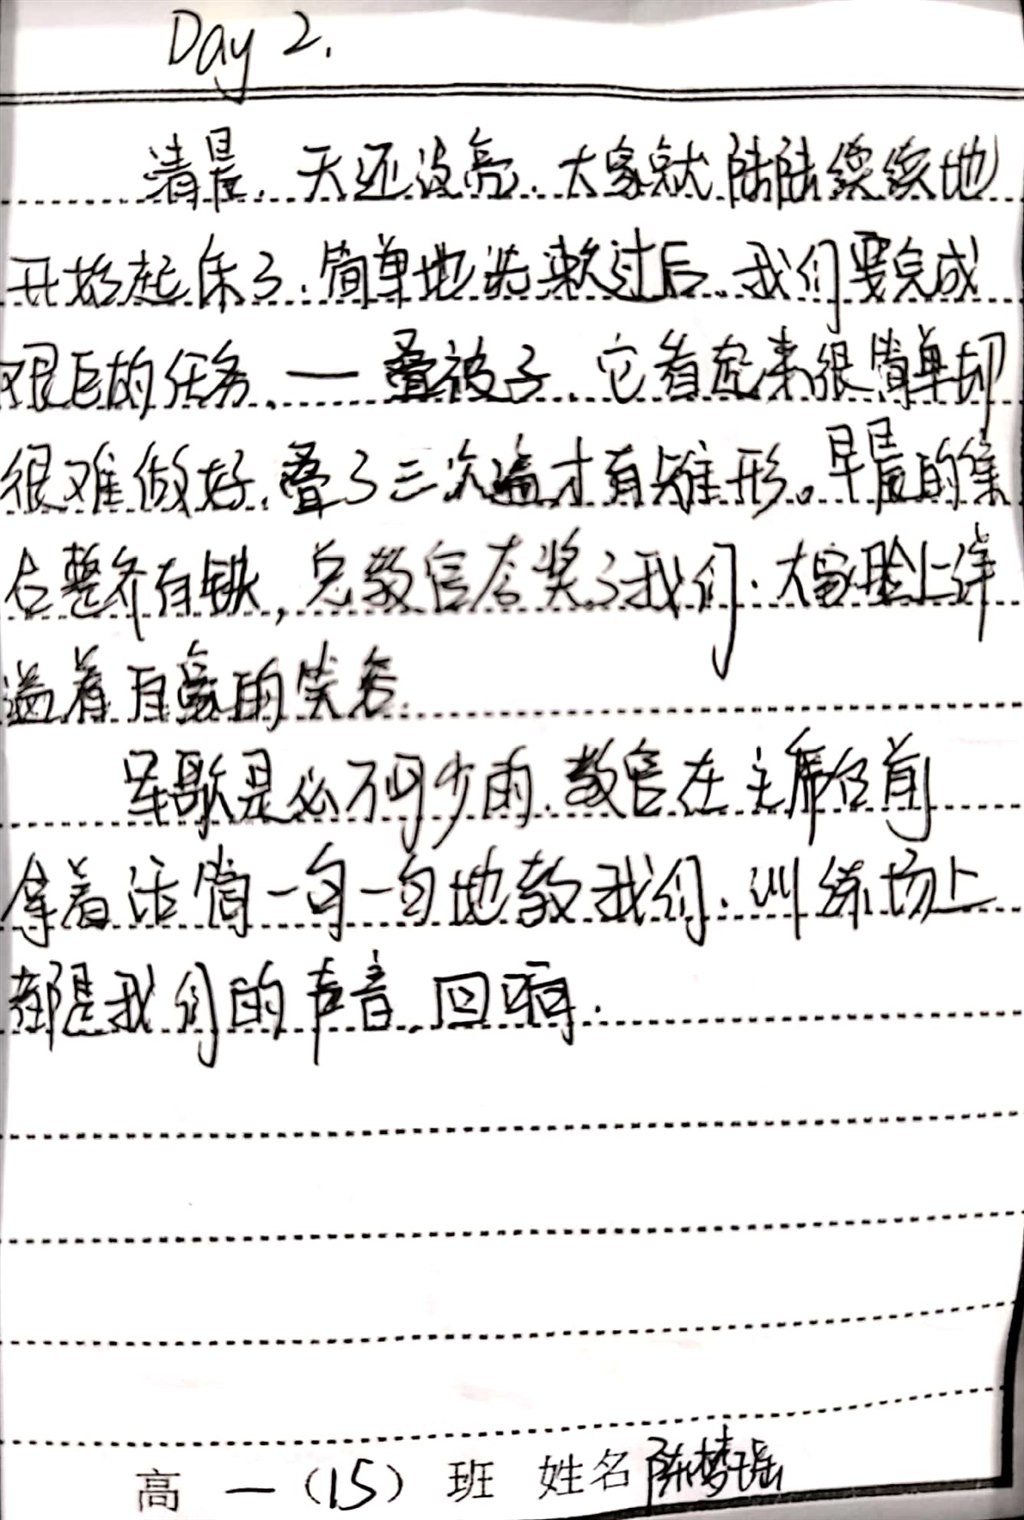 Day 2.
清晨,天还没亮,大家就陆陆续续地
开始起床了,简单地洗漱过后,我们要完成
艰巨的任务,—叠被子,它看起来很简单却
很难做好,叠了三次遍才有雏形。早晨的集
合整齐有秩,总教官夸奖了我们,大家脸上洋
溢着自豪的笑容.
军歌是必不可少的,教官在主席台前
拿着话筒一句一句地教我们,训练场上
都是我们的声音,回响.
高一(15)班 姓名陈梦瑶